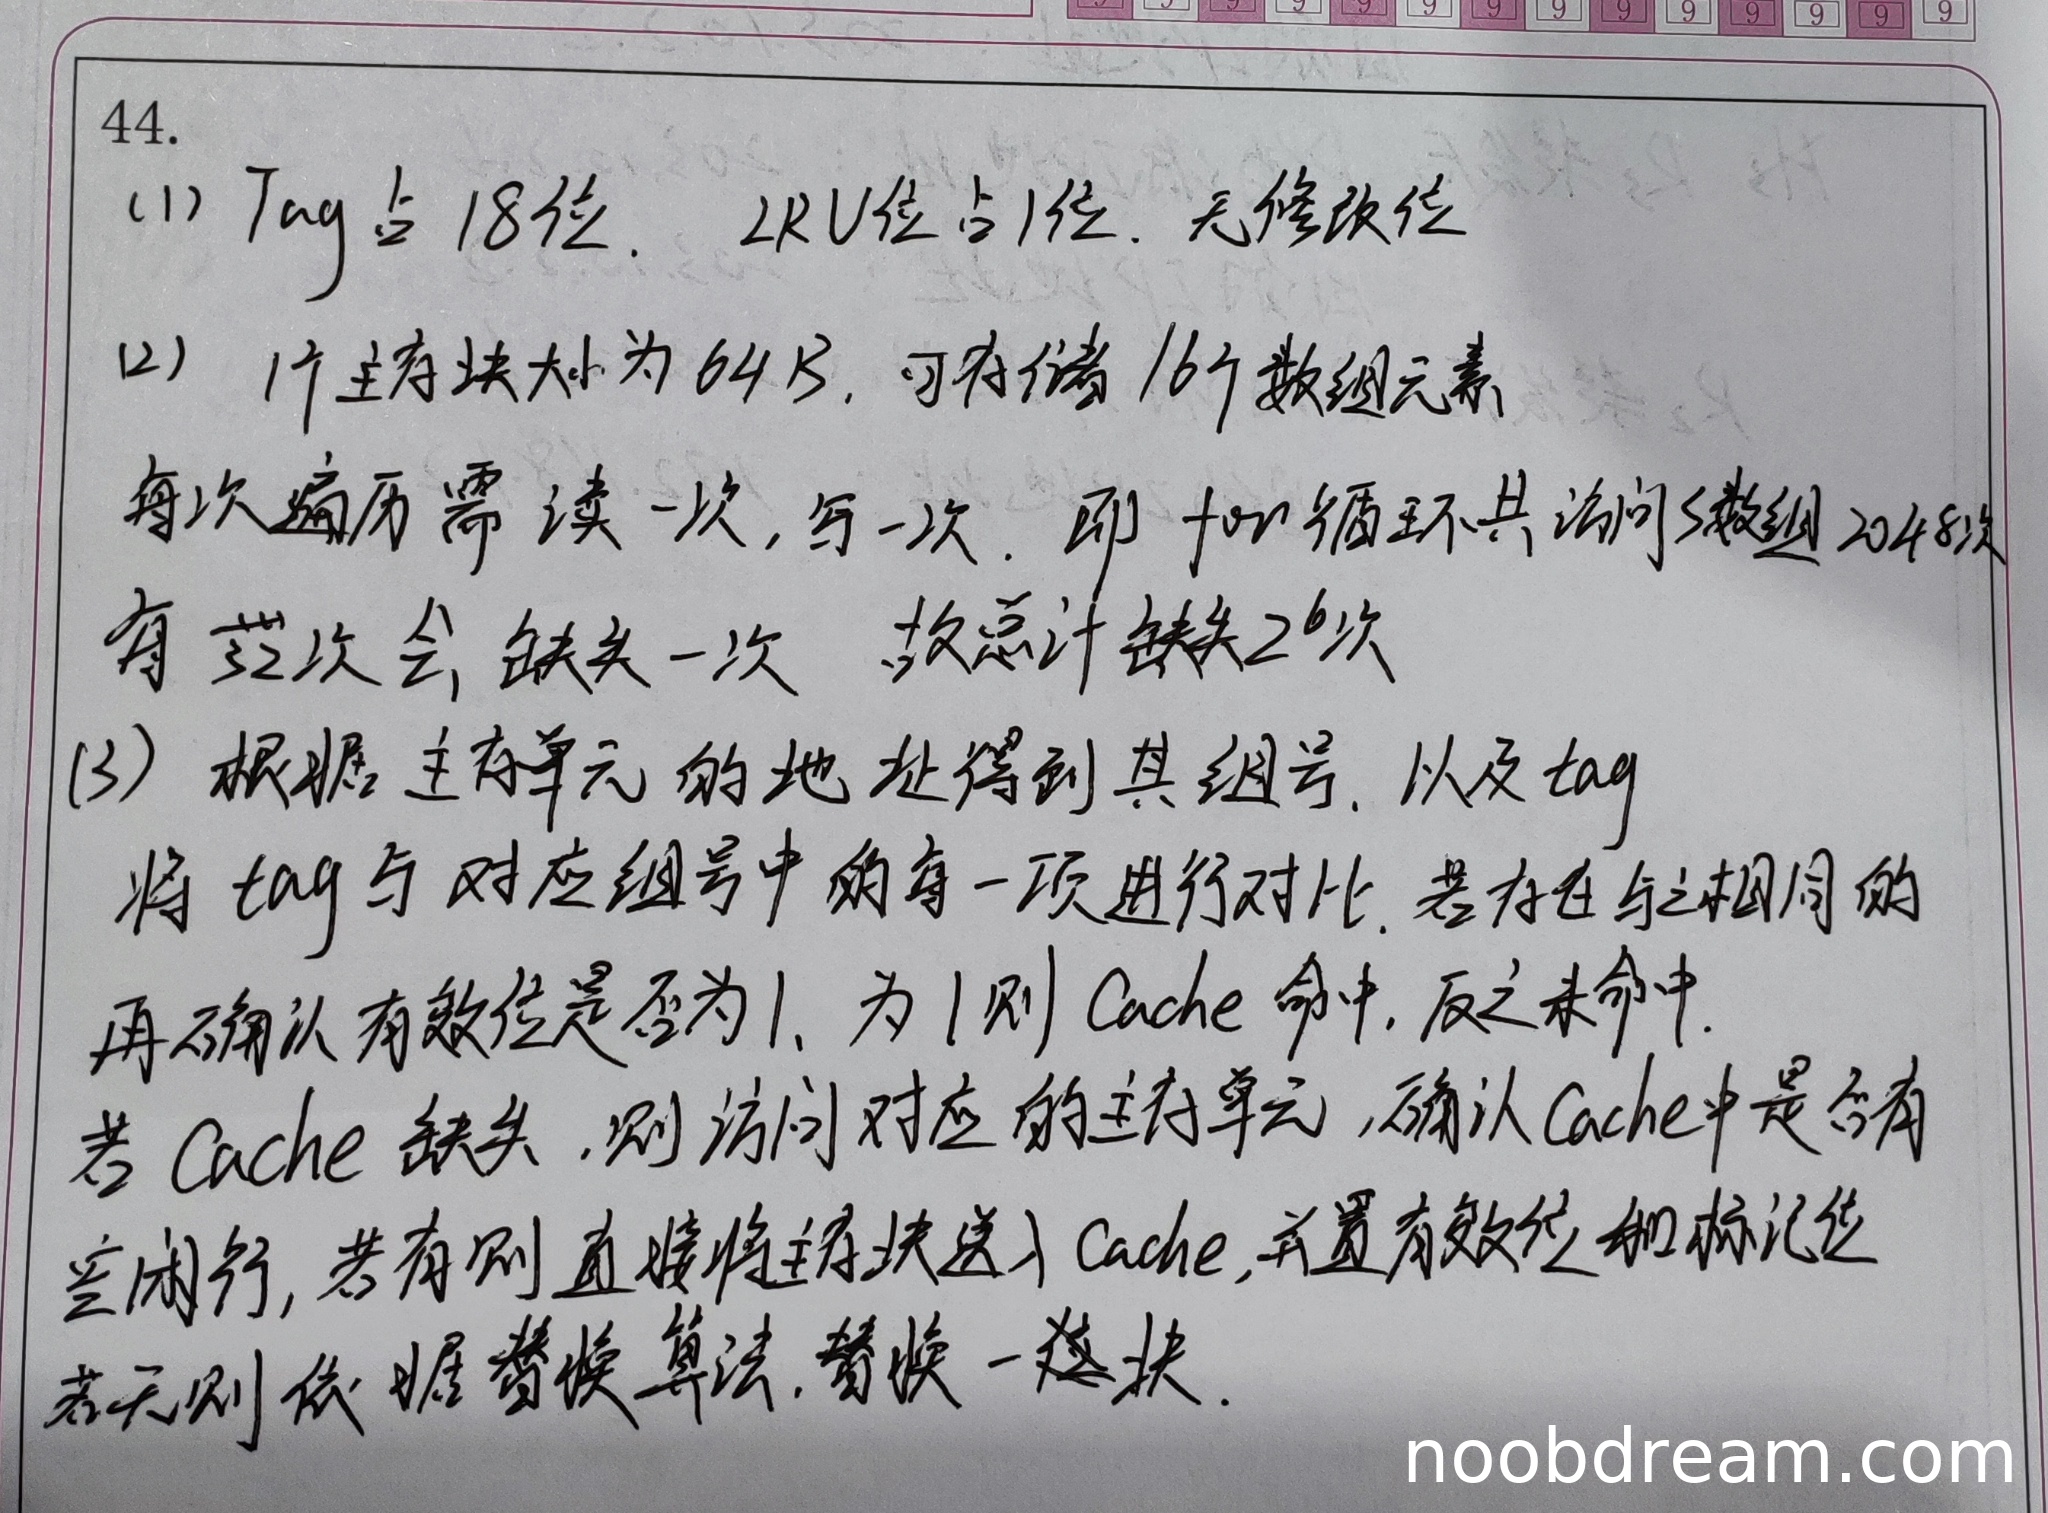 9 9 9 9 9 9 9 9 9 9 9 9 9
44.
(1) Tag占18位. LRU位占1位. 无修改位
(2) 1个主存块大小为64B, 可存储16个数组元素
每次遍历需读一次, 写一次. 即 for循环共访问s数组2048次
每32次会缺失一次 故总计缺失2⁶次
(3) 根据主存单元的地址得到其组号, 以及tag
将tag与对应组号中的每一项进行对比. 若存在与之相同的
再确认有效位是否为1、为1则Cache命中, 反之未命中.
若Cache缺失, 则访问对应的主存单元, 确认Cache中是否有
空闲行, 若有则直接将主存块送入Cache, 并置有效位和标记位
若无则依据替换算法, 替换一块.
noobdream.com